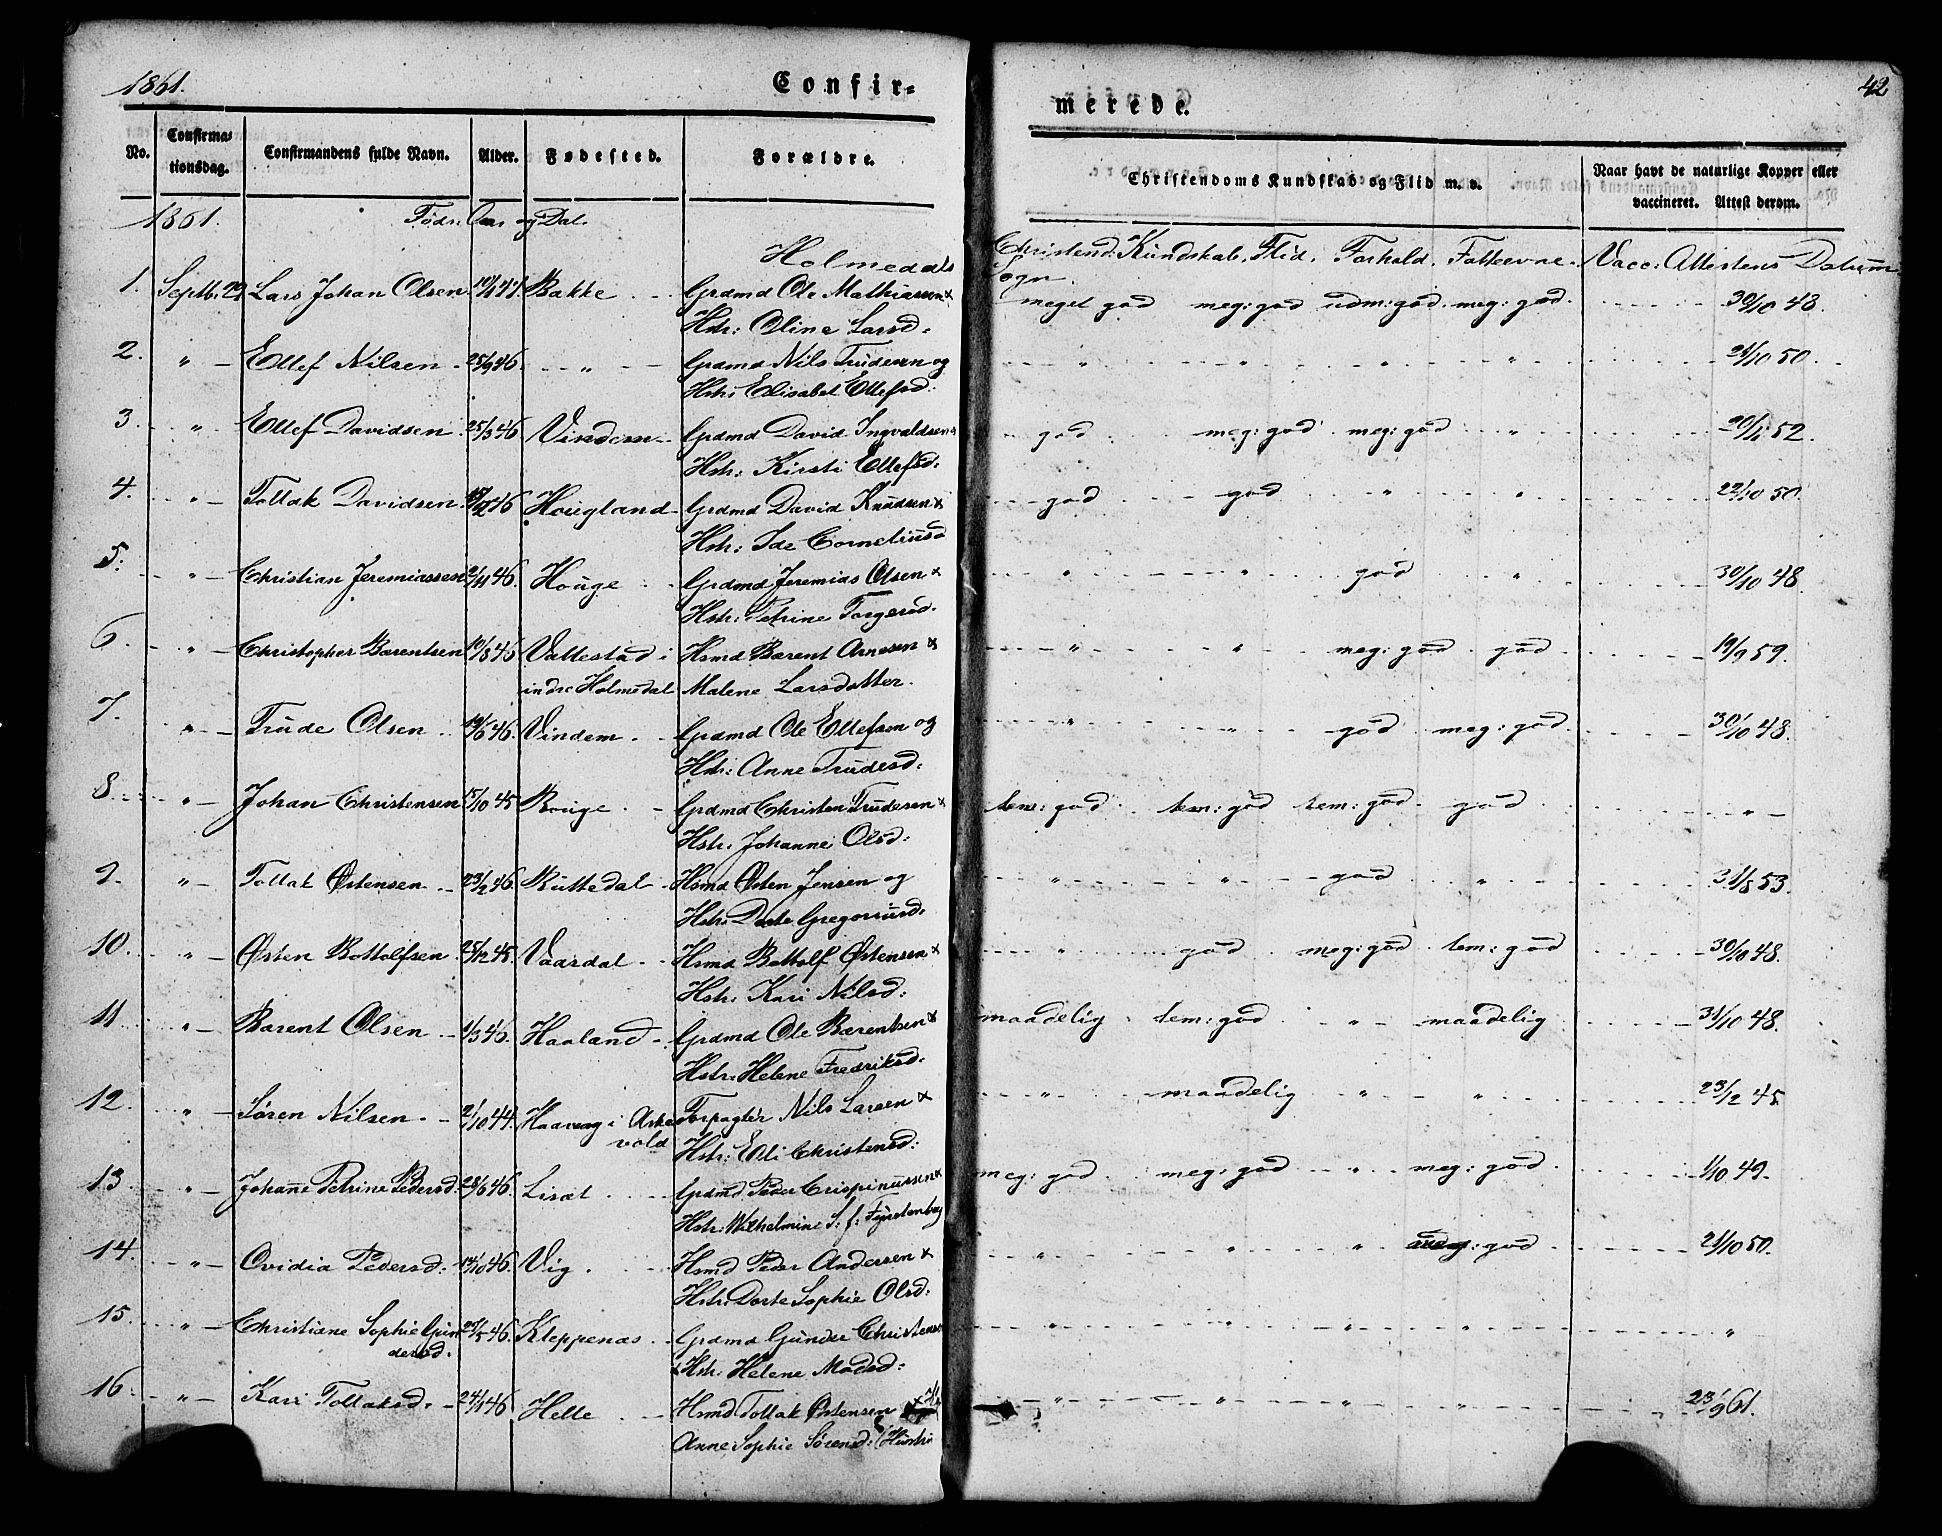 1861.
Confir=
merede.
42
No.
Confirma=
tionsdag.
Confirmandens fulde Navn.
Alder.
Fødested.
Forældre.
Christendoms Kundskab og Flid m. v.
Naar havt de naturlige Kopper eller
vaccineret. Attest derom.
1861. Føds: Aar og Dat.
Holmedals Sogn
Christend: Kundskab. Flid. Forhold. Fatteevne. Vacc: Attestens Datum
1. Septbr. 29 Lars Johan Olsen Bakke Grdmd Ole Mathiassen & meget god meg: god udm: god. meg: god. 30/10 48.
Hstr: Oline Larsd:
2. " Ellef Nilsen 25/9 46. " Grdmd Nils Trudesen og " " " " 21/10 50.
Hstr: Elisabet Ellefsd:
3. " Ellef Davidsen 25/3 46. Vindem Grdmd David Ingvaldsen & god meg: god meg: god " 52.
Hstr: Kirsti Ellefsd:
4. " Tollak Davidsen Hougland Grdmd David Knudsen & god god " " 50.
Hstr: Ide Corneliusd
5. " Christian Jeremiassen 2/11 46. Houge Grdmd Jeremias Olsen & " " god " 30/10 48.
Hstr: Petrine Torgersd.
6. " Christopher Barentsen 10/8 46 Vallestad i Hsmd Barent Arnesen & " " meg: god god 19/9 59.
indre Holmedal Malene Larsdatter.
7. " Trude Olsen 46. Vindem Grdmd Ole Ellefsen og " " god meg: god 30/10 48.
Hstr: Anne Trudesd:
8. " Johan Christensen 15/10 45 Grdmd Christen Trudesen & tem: god tem: god tem: god god "
Hstr: Johanne Olsd:
9. " Tollak Østensen 23/2 46. Rutledal Hsmd Østen Jensen og " " god " 31/8 53.
Hstr: Dorte Gregoriusd:
10. " Østen Bottolfsen 25/12 45. Vaardal Hsmd Bottolf Østensen & " god meg: god tem: god 30/10 48.
Hstr: Kari Nilsd:
11. " Barent Olsen 1/3 46. Haaland Grdmd Ole Barentsen & maadelig tem: god " maadelig 31/10 48.
Hstr: Helene Fredriksd.
12. " Søren Nilsen 2/10 44. Haavaag i Aske Forpagter Nils Larsen & " maadelig " " 23/2 45
vold Hstr: Eli Christensd:
13. " Johanne Petrine Pedersd: 28/6 46. Liset Grdmd Peder Crispinussen & meg: god meg: god " meg: god 1/10 49.
Hstr: Wilhelmine S: f: Fyrstenberg
14. " Ovidia Pedersd: 14/10 46. Vig. Hsmd Peder Andersen & " " " meg: god 21/10 50.
Hstr: Dorte Sophie Olsd:
15. " Christiane Sophie Gun 46. Kleppenæs Grdmd Gunder Christensen " " " " "
dersd. & Hstr: Helene Madsd:
16. " Kari Tollaksd. 24/1 46 Helle Hsmd Tollak Østensen " " " " 23/9 61.
Anne Sophie Sørensd: (Hustru